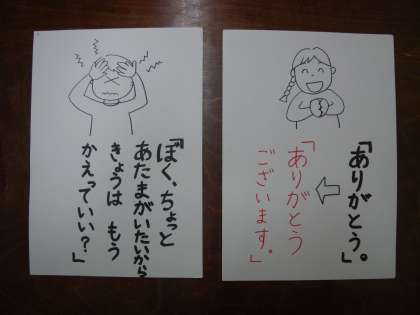 「ぼく、ちょっと
あたまがいたいから
きょうは もう
かえっていい？」
「ありがとう」。
「ありがとう
ございます。」